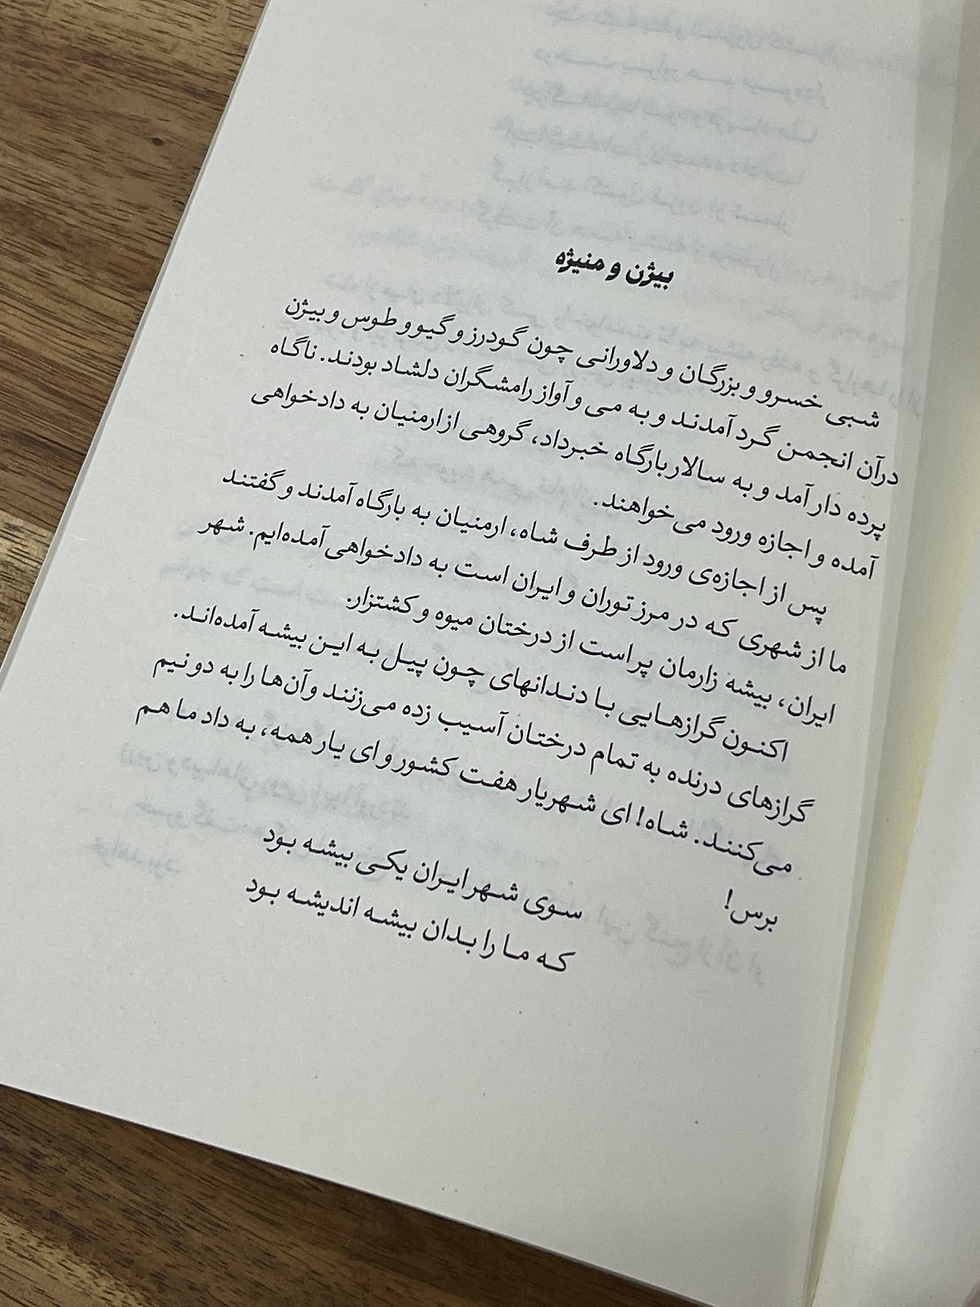 بیژن و منیژه
شبی خسرو و بزرگان و دلاورانی چون گودرز و گیو و طوس و بیژن
درآن انجمن گرد آمدند و به می و آواز رامشگران دلشاد بودند. ناگاه
پرده دار آمد و به سالار بارگاه خبرداد، گروهی از ارمنیان به دادخواهی
آمده و اجازه ورود می‌خواهند.
پس از اجازه‌ی ورود از طرف شاه، ارمنیان به بارگاه آمدند و گفتند
ما از شهری که در مرز توران و ایران است به دادخواهی آمده‌ایم. شهر
ایران، بیشه زارمان پر است از درختان میوه و کشتزار.
اکنون گرازهایی با دندانهای چون پیل به این بیشه آمده‌اند.
گرازهای درنده به تمام درختان آسیب زده می‌زنند و آن‌ها را به دو نیم
می‌کنند. شاه! ای شهریار هفت کشور و ای یار همه، به داد ما هم
برس!
سوی شهر ایران یکی بیشه بود
که ما را بدان بیشه اندیشه بود